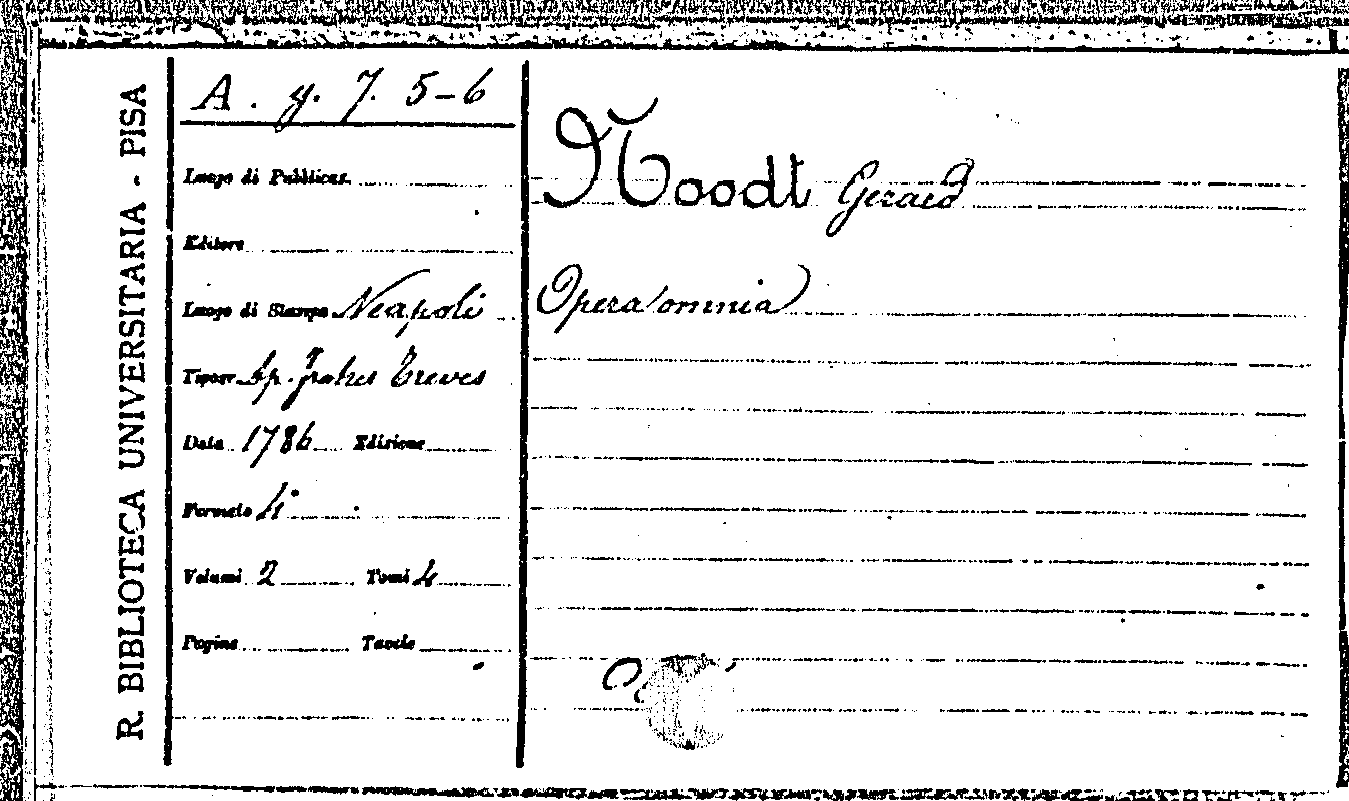 R. BIBLIOTECA UNIVERSITARIA - PISA
A. y. 7. 5-6
Luogo di Pubblicaz.
Editore
Luogo di Stampa Neapoli
Tipogr. Treves
Data 1786 Edizione
Formato 4°
Volumi 2 Tomi 4
Pagine Tavole
Noodt Gerard
Opera omnia